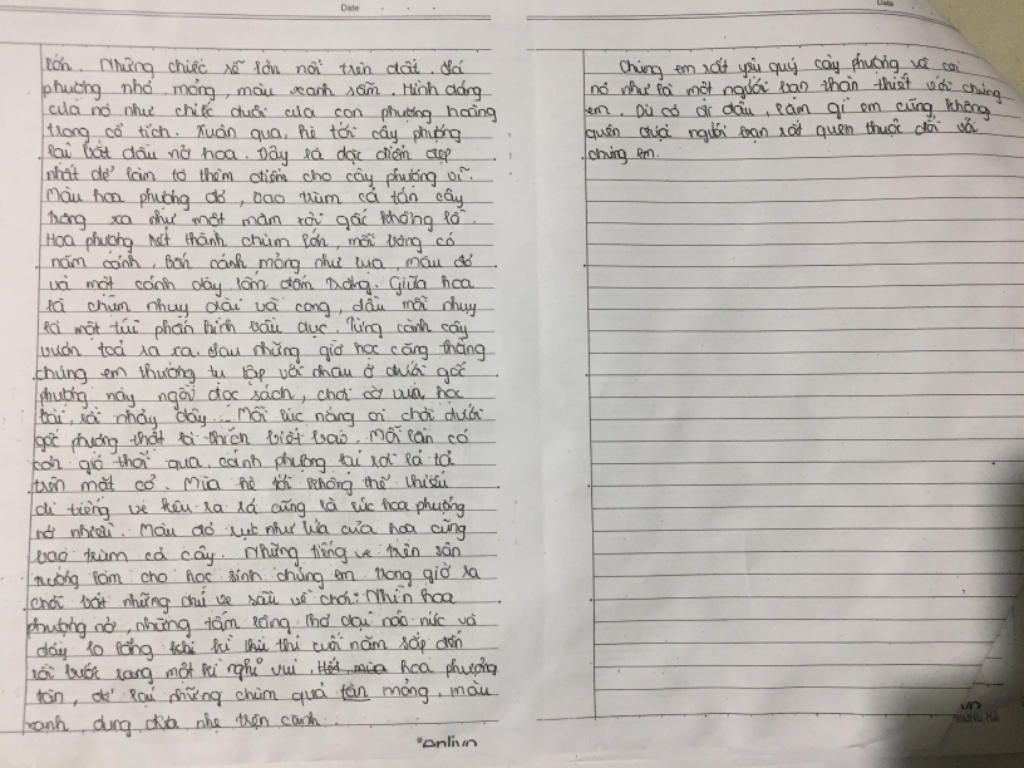 Date
lớn. Những chiếc rễ lớn nổi trên đất. Lá
phượng nhỏ mỏng, màu xanh sẫm. Hình dáng
của nó như chiếc đuôi của con phượng hoàng
trong cổ tích. Xuân qua, hè tới cây phượng
lại bắt đầu nở hoa. Đây là đặc điểm đẹp
nhất để làm tô thêm điểm cho cây phượng vĩ.
Màu hoa phượng đỏ, bao trùm cả tán cây
trông xa như một mâm xôi gấc khổng lồ.
Hoa phượng kết thành chùm lớn, mỗi bông có
năm cánh, bốn cánh mỏng như lụa, màu đỏ
và một cánh dày lấm đốm trắng. Giữa hoa
là chùm nhuỵ dài và cong, đầu mỗi nhuỵ
là một túi phấn hình bầu dục. Từng cành cây
vươn toả ra xa. Sau những giờ học căng thẳng
chúng em thường tụ tập với nhau ở dưới gốc
phượng này ngồi đọc sách, chơi cờ vua, học
bài, rồi nhảy dây... Mỗi lúc nóng oi chơi dưới
gốc phượng thật là thích biết bao. Mỗi lần có
cơn gió thổi qua cánh phượng lại rơi lả tả
trên mặt cỏ. Mùa hè tới không thể thiếu
đi tiếng ve kêu ra rả cũng là lúc hoa phượng
nở nhiều. Màu đỏ rực như lửa của hoa cũng
bao trùm cả cây. Những tiếng ve trên sân
trường làm cho học sinh chúng em trong giờ ra
chơi bắt những chú ve sầu về chơi. Nhìn hoa
phượng nở, những tấm lòng thơ dại náo nức và
đầy lo lắng khi kì thi cuối năm sắp đến
rồi bước sang một kì nghỉ vui. Hết mùa hoa phượng
tàn, để lại những chùm quả tán mỏng, màu
xanh, đung đưa nhẹ trên cành.
*enlivn
Date
Chúng em rất yêu quý cây phượng và coi
nó như là một người bạn thân thiết với chúng
em. Dù có đi đâu, làm gì em cũng không
quên được người bạn rất quen thuộc đối với
chúng em.
HỒNG HÀ